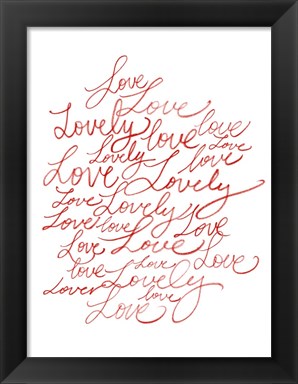 Love
Love
Lovely love love
Lovely love Love
Love Lovely love
Love Lovely
Love love Love
Love Love Love
love Love Love
Lover Lovely
love
Love